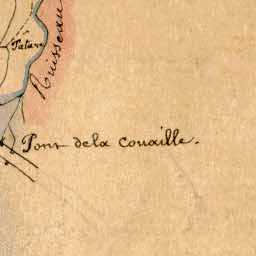 Pature
Ruisseau
Pont dela Couaille.